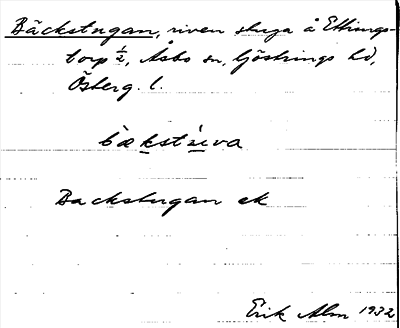 Bäckstugan, riven stuga å Ettings-
torp ½, Åsbo sn, Göstrings hd,
Österg. l.
Backstugan ek
Erik Alm 1932